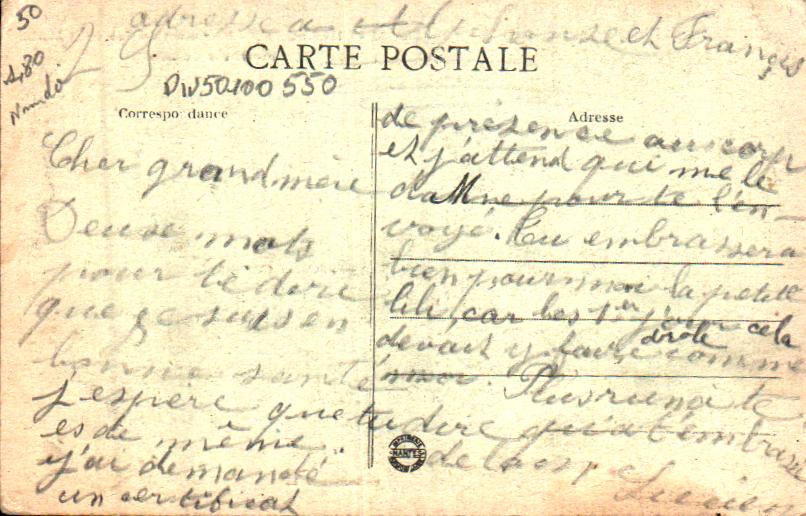 50
1,80
adresse a et Franços
CARTE POSTALE
DIV50100 550
Correspondance
Adresse
Cher grandmère
Deuse mots
pour te dire
que je suis en
bonne santé
j'espère que tu
es de même.
j'ai demandé
un certificat
de présence au corp
et j'attend qui me le
donne pour te l'en-
voyé. Tu embrassera
bien pour moi la petite
lili, car les 1er jour cela
devait y faire drole comme
moi. Plus rien a te
dire qu'a t'embrasser
de loin Lucien
IMPRIMERIE
NANTES